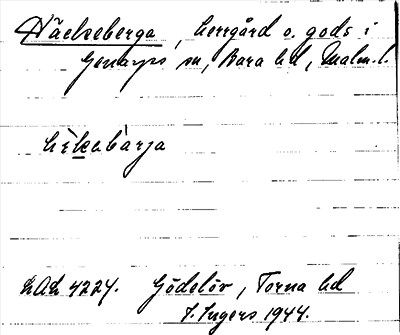 Häckeberga, herrgård o. gods i
Genarps sn, Bara hd, Malm. l.
hèkabàrja
LAL 4224. Gödelöv, Torna hd
I. Ingers 1944.